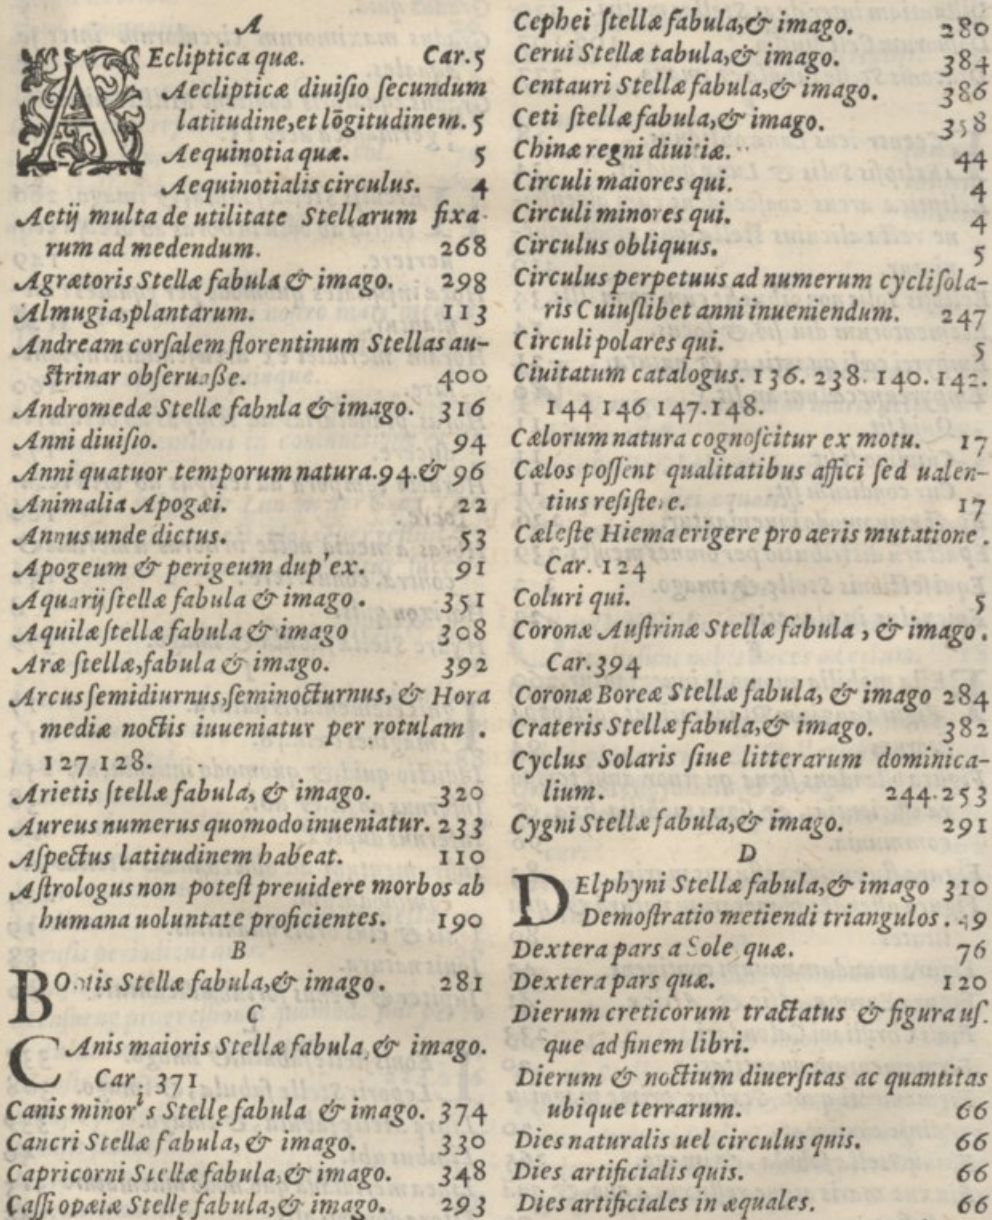 A
AEcliptica quæ. Car. 5
Aeclipticæ diuiſio ſecundum
latitudine, et lōgitudinem. 5
Aequinotia quæ. 5
Aequinotialis circulus. 4
Aetij multa de utilitate Stellarum fixa-
rum ad medendum. 268
Agrætoris Stellæ fabula & imago. 298
Almugia, plantarum. 113
Andream corſalem florentinum Stellas au-
ſtrinar obſeruaſſe. 400
Andromedæ Stellæ fabnla & imago. 316
Anni diuiſio. 94
Anni quatuor temporum natura. 94. & 96
Animalia Apogæi. 22
Annus unde dictus. 53
Apogeum & perigeum dup'ex. 91
Aquarij ſtellæ fabula & imago. 351
Aquilæ ſtellæ fabula & imago 308
Aræ ſtellæ, fabula & imago. 392
Arcus ſemidiurnus, ſeminocturnus, & Hora
mediæ noctis iuueniatur per rotulam.
127 128.
Arietis ſtellæ fabula, & imago. 320
Aureus numerus quomodo inueniatur. 233
Aſpectus latitudinem habeat. 110
Aſtrologus non poteſt preuidere morbos ab
humana uoluntate proficientes. 190
B
BOotis Stellæ fabula, & imago. 281
C
CAnis maioris Stellæ fabula, & imago.
Car. 371
Canis minoris Stellę fabula & imago. 374
Cancri Stellæ fabula, & imago. 330
Capricorni Stellæ fabula, & imago. 348
Caſſiopæiæ Stellę fabula, & imago. 293
Cephei ſtellæ fabula, & imago. 280
Cerui Stellæ tabula, & imago. 384
Centauri Stellæ fabula, & imago. 386
Ceti ſtellæ fabula, & imago. 358
Chinæ regni diuitiæ. 44
Circuli maiores qui. 4
Circuli minores qui. 4
Circulus obliquus. 5
Circulus perpetuus ad numerum cycli ſola-
ris Cuiuſlibet anni inueniendum. 247
Circuli polares qui. 5
Ciuitatum catalogus. 136. 238. 140. 142.
144 146 147. 148.
Cælorum natura cognoſcitur ex motu. 17
Cælos poſſent qualitatibus affici ſed ualen-
tius reſiſtere. 17
Cæleſte Hiema erigere pro aeris mutatione.
Car. 124
Coluri qui. 5
Coronæ Auſtrinæ Stellæ fabula, & imago.
Car. 394
Coronæ Boreæ Stellæ fabula, & imago 284
Crateris Stellæ fabula, & imago. 382
Cyclus Solaris ſiue litterarum dominica-
lium. 244. 253
Cygni Stellæ fabula, & imago. 291
D
DElphyni Stellæ fabula, & imago 310
Demoſtratio metiendi triangulos. 49
Dextera pars a Sole quæ. 76
Dextera pars quæ. 120
Dierum creticorum tractatus & figura uſ.
que ad finem libri.
Dierum & noctium diuerſitas ac quantitas
ubique terrarum. 66
Dies naturalis uel circulus quis. 66
Dies artificialis quis. 66
Dies artificiales in æquales. 66